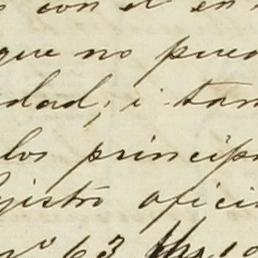 con el en
que no pued
dad; i tam
los princip
gistro ofici
nº 63